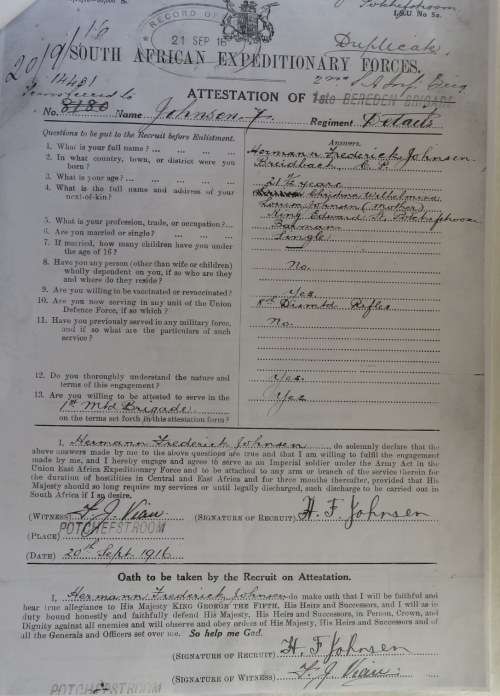 Potchefstroom.
I.S.U No 5a.
RECORD OF
21 SEP 16
20/9/16
Duplicate
SOUTH AFRICAN EXPEDITIONARY FORCES.
14481
Transferred to
2nd S.A. Inf. Brig
ATTESTATION OF 1ste BEREDEN BRIGADE
No. 8180 Name Johnsen. F. Regiment Details
Questions to be put to the Recruit before Enlistment. Answers.
1. What is your full name? ... Hermann Frederick Johnsen
2. In what country, town, or district were you born? Breidbach C.P.
3. What is your age? ... 21 7/12 years
4. What is the full name and address of your next-of-kin? Christina Wilhelmina
Johnsen (Mother)
King Edward St. Potchefstroom
5. What is your profession, trade, or occupation? ... Barman
6. Are you married or single? ... Single
7. If married, how many children have you under the age of 16? —
8. Have you any person (other than wife or children) wholly dependent on you, if so who are they and where do they reside? No.
9. Are you willing to be vaccinated or revaccinated? Yes
10. Are you now serving in any unit of the Union Defence Force, if so which? 8th Dismtd Rifles
11. Have you previously served in any military force, and if so what are the particulars of such service? No.
12. Do you thoroughly understand the nature and terms of this engagement? Yes.
13. Are you willing to be attested to serve in the
1st Mtd Brigade
on the terms set forth in this attestation form? Yes
I, Hermann Frederick Johnsen do solemnly declare that the
above answers made by me to the above questions are true and that I am willing to fulfil the engagement
made by me, and I hereby engage and agree to serve as an Imperial soldier under the Army Act in the
Union East Africa Expeditionary Force and to be attached to any arm or branch of the service therein for
the duration of hostilities in Central and East Africa and for three months thereafter, provided that His
Majesty should so long require my services or until legally discharged, such discharge to be carried out in
South Africa if I so desire.
(WITNESS) F. J. Viau (SIGNATURE OF RECRUIT) H. F Johnsen
(PLACE) POTCHEFSTROOM
(DATE) 20th Sept. 1916
Oath to be taken by the Recruit on Attestation.
I, Hermann Frederick Johnsen do make oath that I will be faithful and
bear true allegiance to His Majesty KING GEORGE THE FIFTH, His Heirs and Successors, and I will as in
duty bound honestly and faithfully defend His Majesty, His Heirs and Successors, in Person, Crown, and
Dignity against all enemies and will observe and obey orders of His Majesty, His Heirs and Successors and of
all the Generals and Officers set over me. So help me God.
(SIGNATURE OF RECRUIT) H. F Johnsen
(SIGNATURE OF WITNESS) F. J. Viau
POTCHEFSTROOM